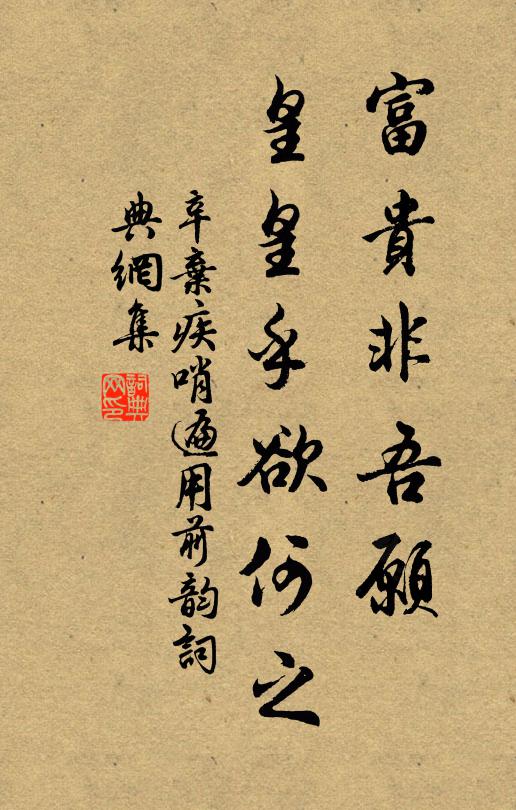 富貴非吾願
皇皇乎欲何之
辛棄疾哨遍用前韵詞
典網集
詞典
网印